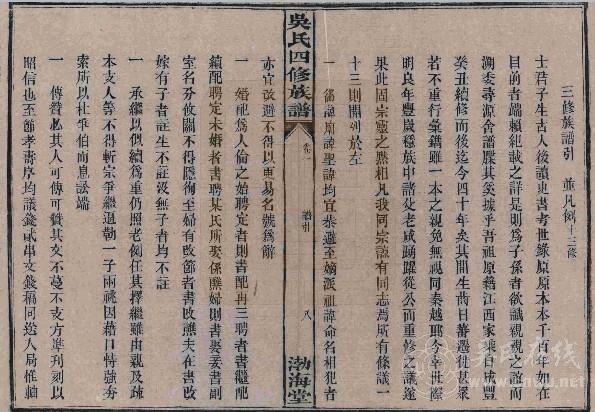 三修族譜引 並凡例十三條
士君子生古人後讀史書考世錄原原本本千百年如在
目前者端賴紀載之詳是則為子孫者欲識親親之誼而
溯委尋源舍譜牒其奚據乎吾祖原籍江西家
癸丑續修而後迄今四十年矣其間生齒日蕃遷徙眾
若不重行彙鐫雖一本之親免無視同秦越耶今幸世際
明良年豐歲稔族中諸父老咸踴躍從公而重修之議遂
果此固宗靈之默相凡我同宗諒有同志焉所有條議一
十三則開列於左
一 廟諱聖諱均宜恭避至嫡派祖諱命名相犯者
亦宜改避不得以更易名號為辭
一 婚配為人倫之始聘定者則書配再三聘者書繼配
續配聘定未婚者書聘某氏所娶係醮婦則書娶妾書副
室名分攸關不得隱徇至婦有改節者書改醮夫在書
嫁有子者註生不註歿無子者均不註
一 承繼以似續為重仍照老例任其擇繼雖由親及疎
本支人等不得斬宗爭繼逼勒一子兩祧因藉口恃強夯
索所以杜爭佔而息訟端
一 傳贊必其人可傳可贊其文不蔓不支方準刊刻以
昭信也至節孝壽序均議錢貳串文錢稿同送人局惟軸
吳氏四修族譜
卷
譜引
八
渤海堂
吳氏在線